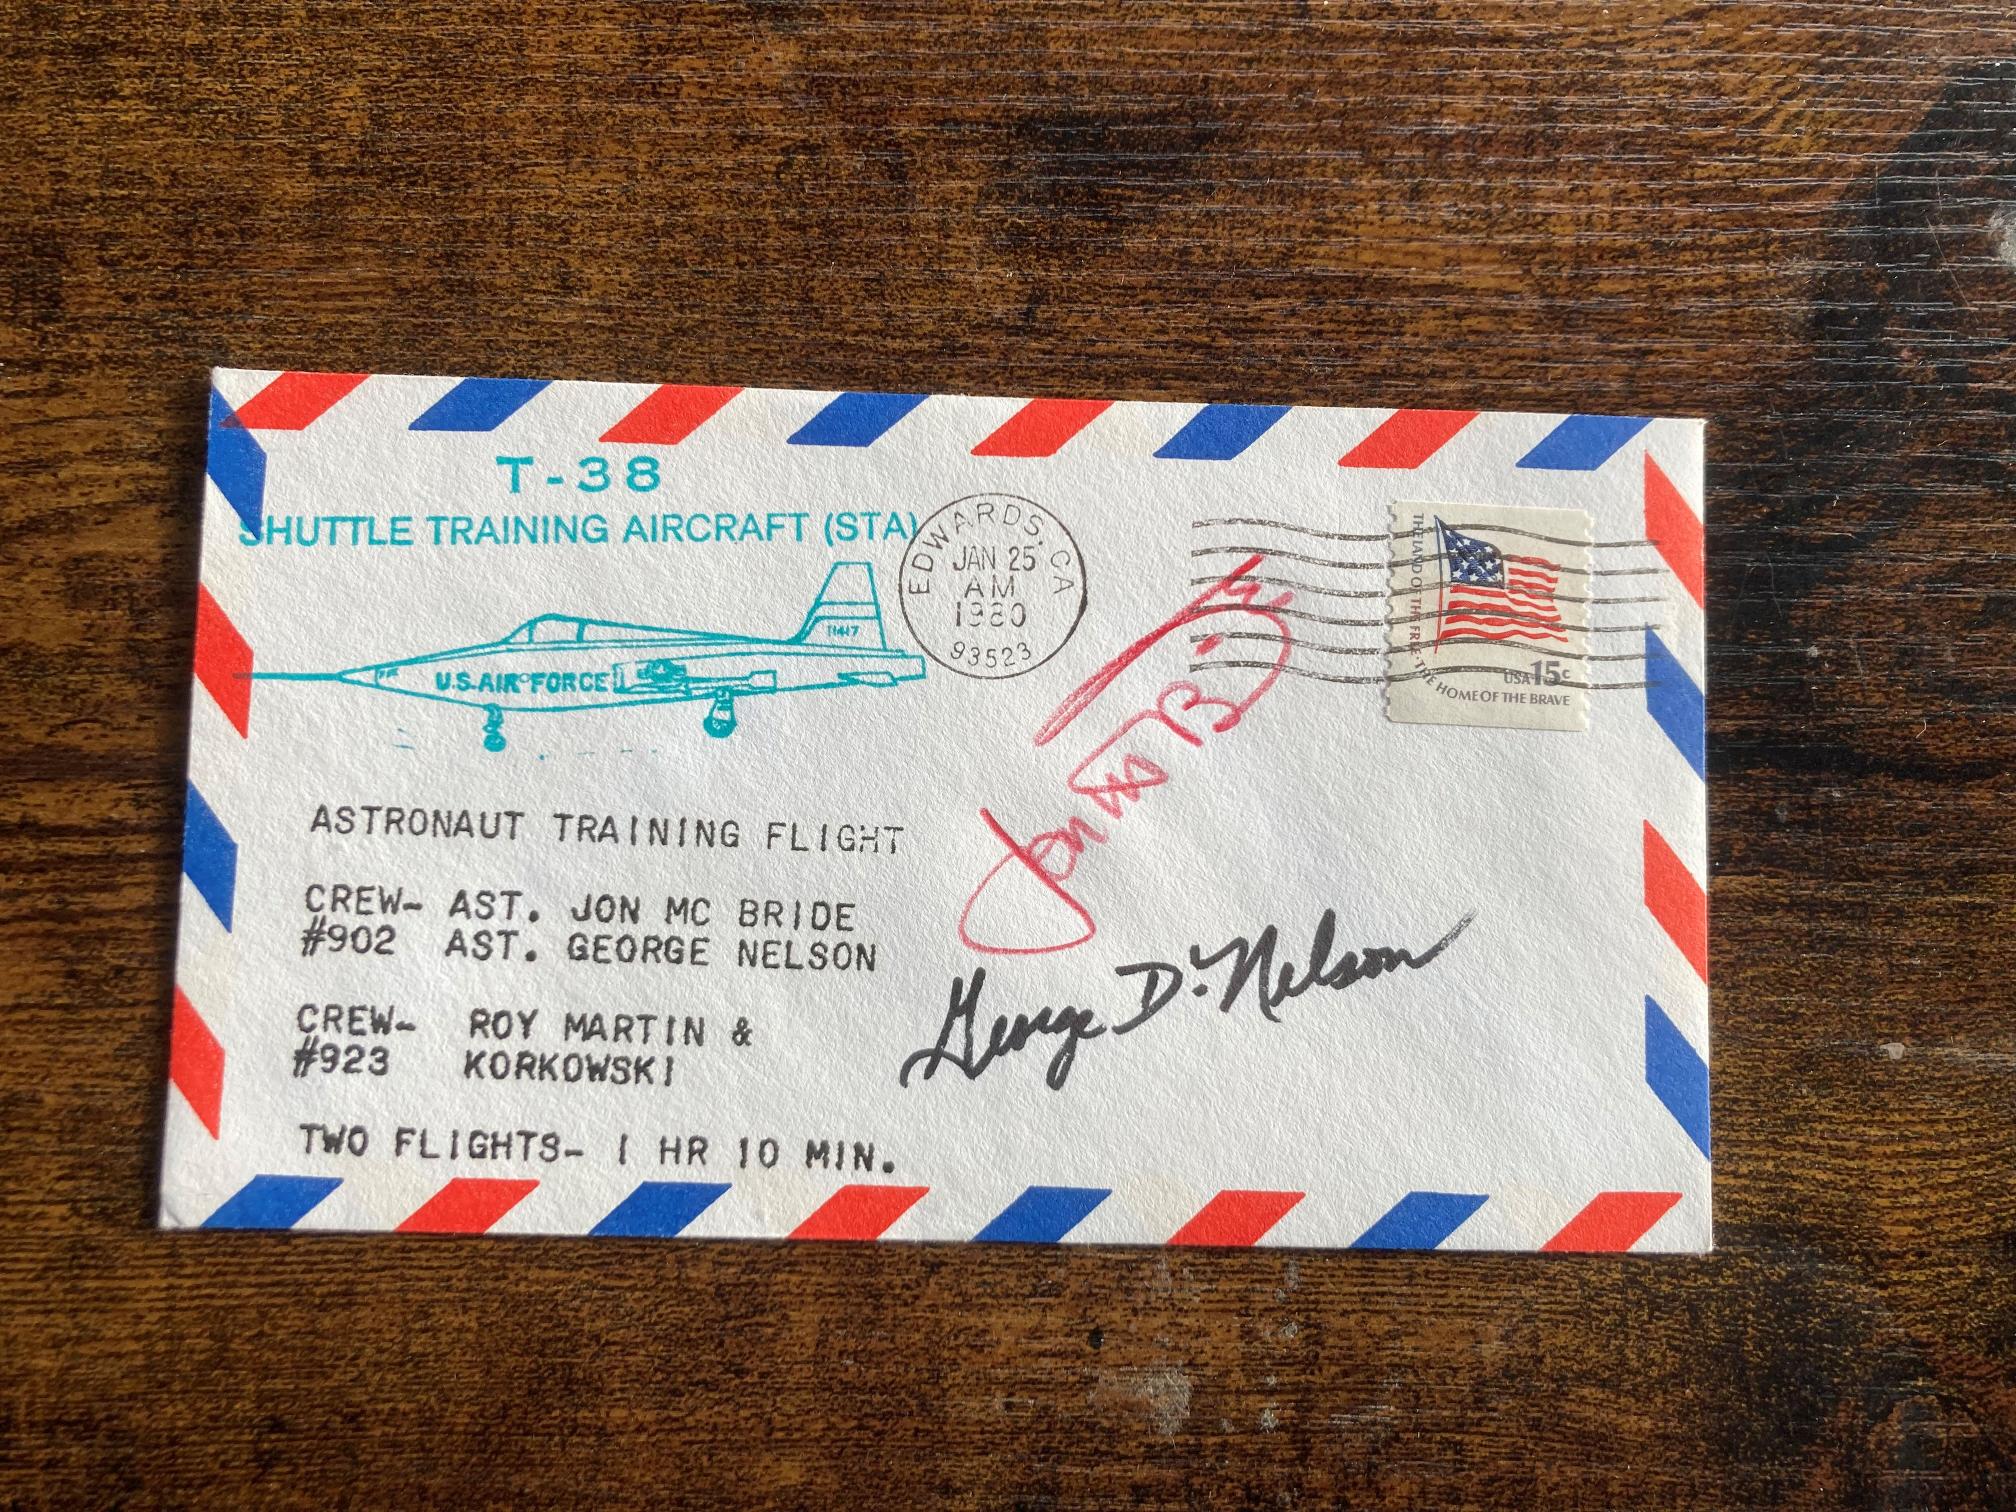 T-38
SHUTTLE TRAINING AIRCRAFT (STA)
U.S. AIR FORCE
EDWARDS, CA
JAN 25
AM
1980
93523
THE LAND OF THE FREE THE HOME OF THE BRAVE
USA 15c
Jon McBride
George D. Nelson
ASTRONAUT TRAINING FLIGHT
CREW- AST. JON MC BRIDE
#902 AST. GEORGE NELSON
CREW- ROY MARTIN &
#923 KORKOWSKI
TWO FLIGHTS- 1 HR 10 MIN.